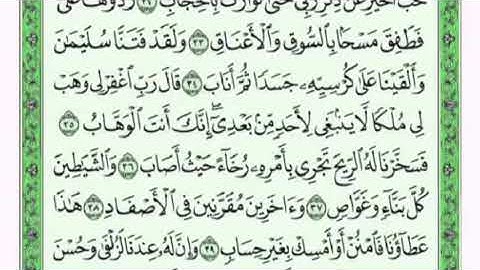 حب الخير عن ذكر ربي حتى توارت بالحجاب ٣٢ ردوها على
فَطَفِقَ مَسْحًۢا بِٱلسُّوقِ وَٱلْأَعْنَاقِ ٣٣ وَلَقَدْ فَتَنَّا سُلَيْمَٰنَ
وَأَلْقَيْنَا عَلَىٰ كُرْسِيِّهِۦ جَسَدًا ثُمَّ أَنَابَ ٣٤ قَالَ رَبِّ ٱغْفِرْ لِى وَهَبْ
لِى مُلْكًا لَّا يَنۢبَغِى لِأَحَدٍ مِّنۢ بَعْدِىٓ ۖ إِنَّكَ أَنتَ ٱلْوَهَّابُ ٣٥
فَسَخَّرْنَا لَهُ ٱلرِّيحَ تَجْرِى بِأَمْرِهِۦ رُخَآءً حَيْثُ أَصَابَ ٣٦ وَٱلشَّيَٰطِينَ
كُلَّ بَنَّآءٍ وَغَوَّاصٍ ٣٧ وَءَاخَرِينَ مُقَرَّنِينَ فِى ٱلْأَصْفَادِ ٣٨ هَٰذَا
عَطَآؤُنَا فَٱمْنُنْ أَوْ أَمْسِكْ بِغَيْرِ حِسَابٍ ٣٩ وَإِنَّ لَهُۥ عِندَنَا لَزُلْفَىٰ وَحُسْنَ